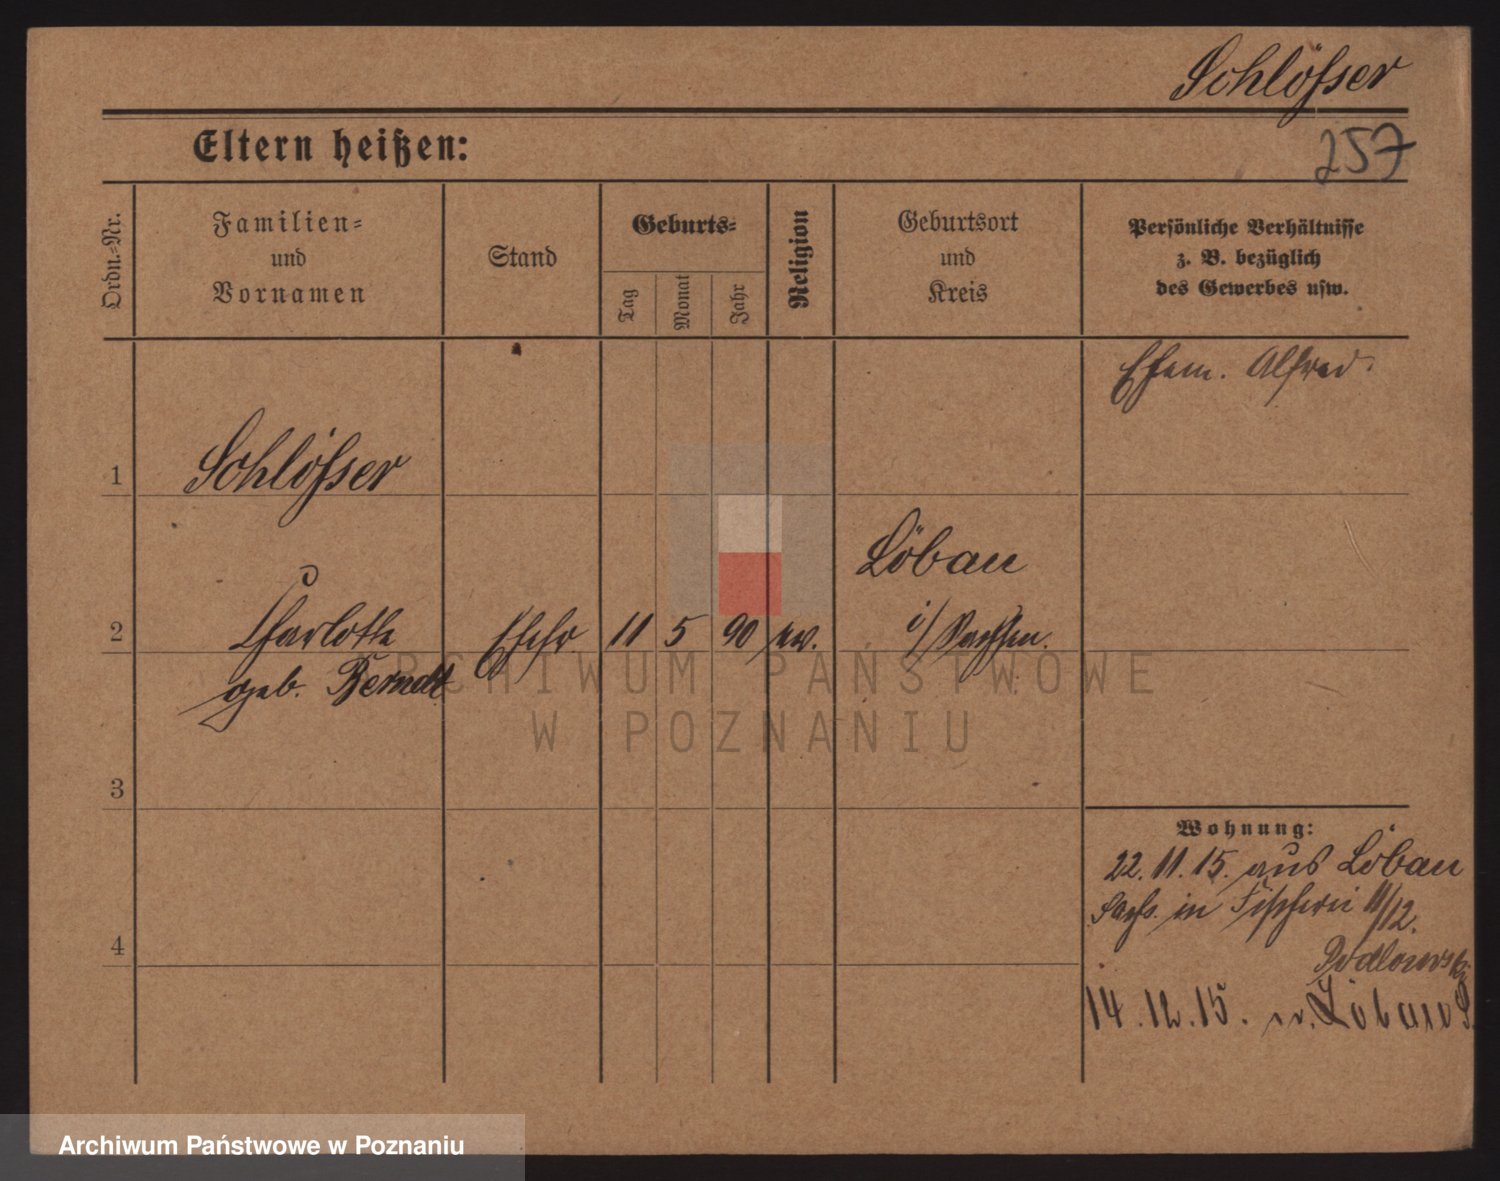 Schlösser
Eltern heißen:
257
Ordn.-Nr.
Familien-
und
Vornamen
Stand
Geburts-
Tag
Monat
Jahr
Religion
Geburtsort
und
Kreis
Persönliche Verhältnisse
z. B. bezüglich
des Gewerbes usw.
Ehem. Alfred.
1
Schlösser
Löbau
2
Charlotte
Ehefr
11
5
90
ev.
i/ Sachsen.
geb. Berndt
ARCHIWUM PAŃSTWOWE
W POZNANIU
3
Wohnung:
22. 11. 15. aus Löbau
Sachs. in Fischerei 11/12.
4
Podlowski
14. 12. 15. n. Löbau S.
Archiwum Państwowe w Poznaniu